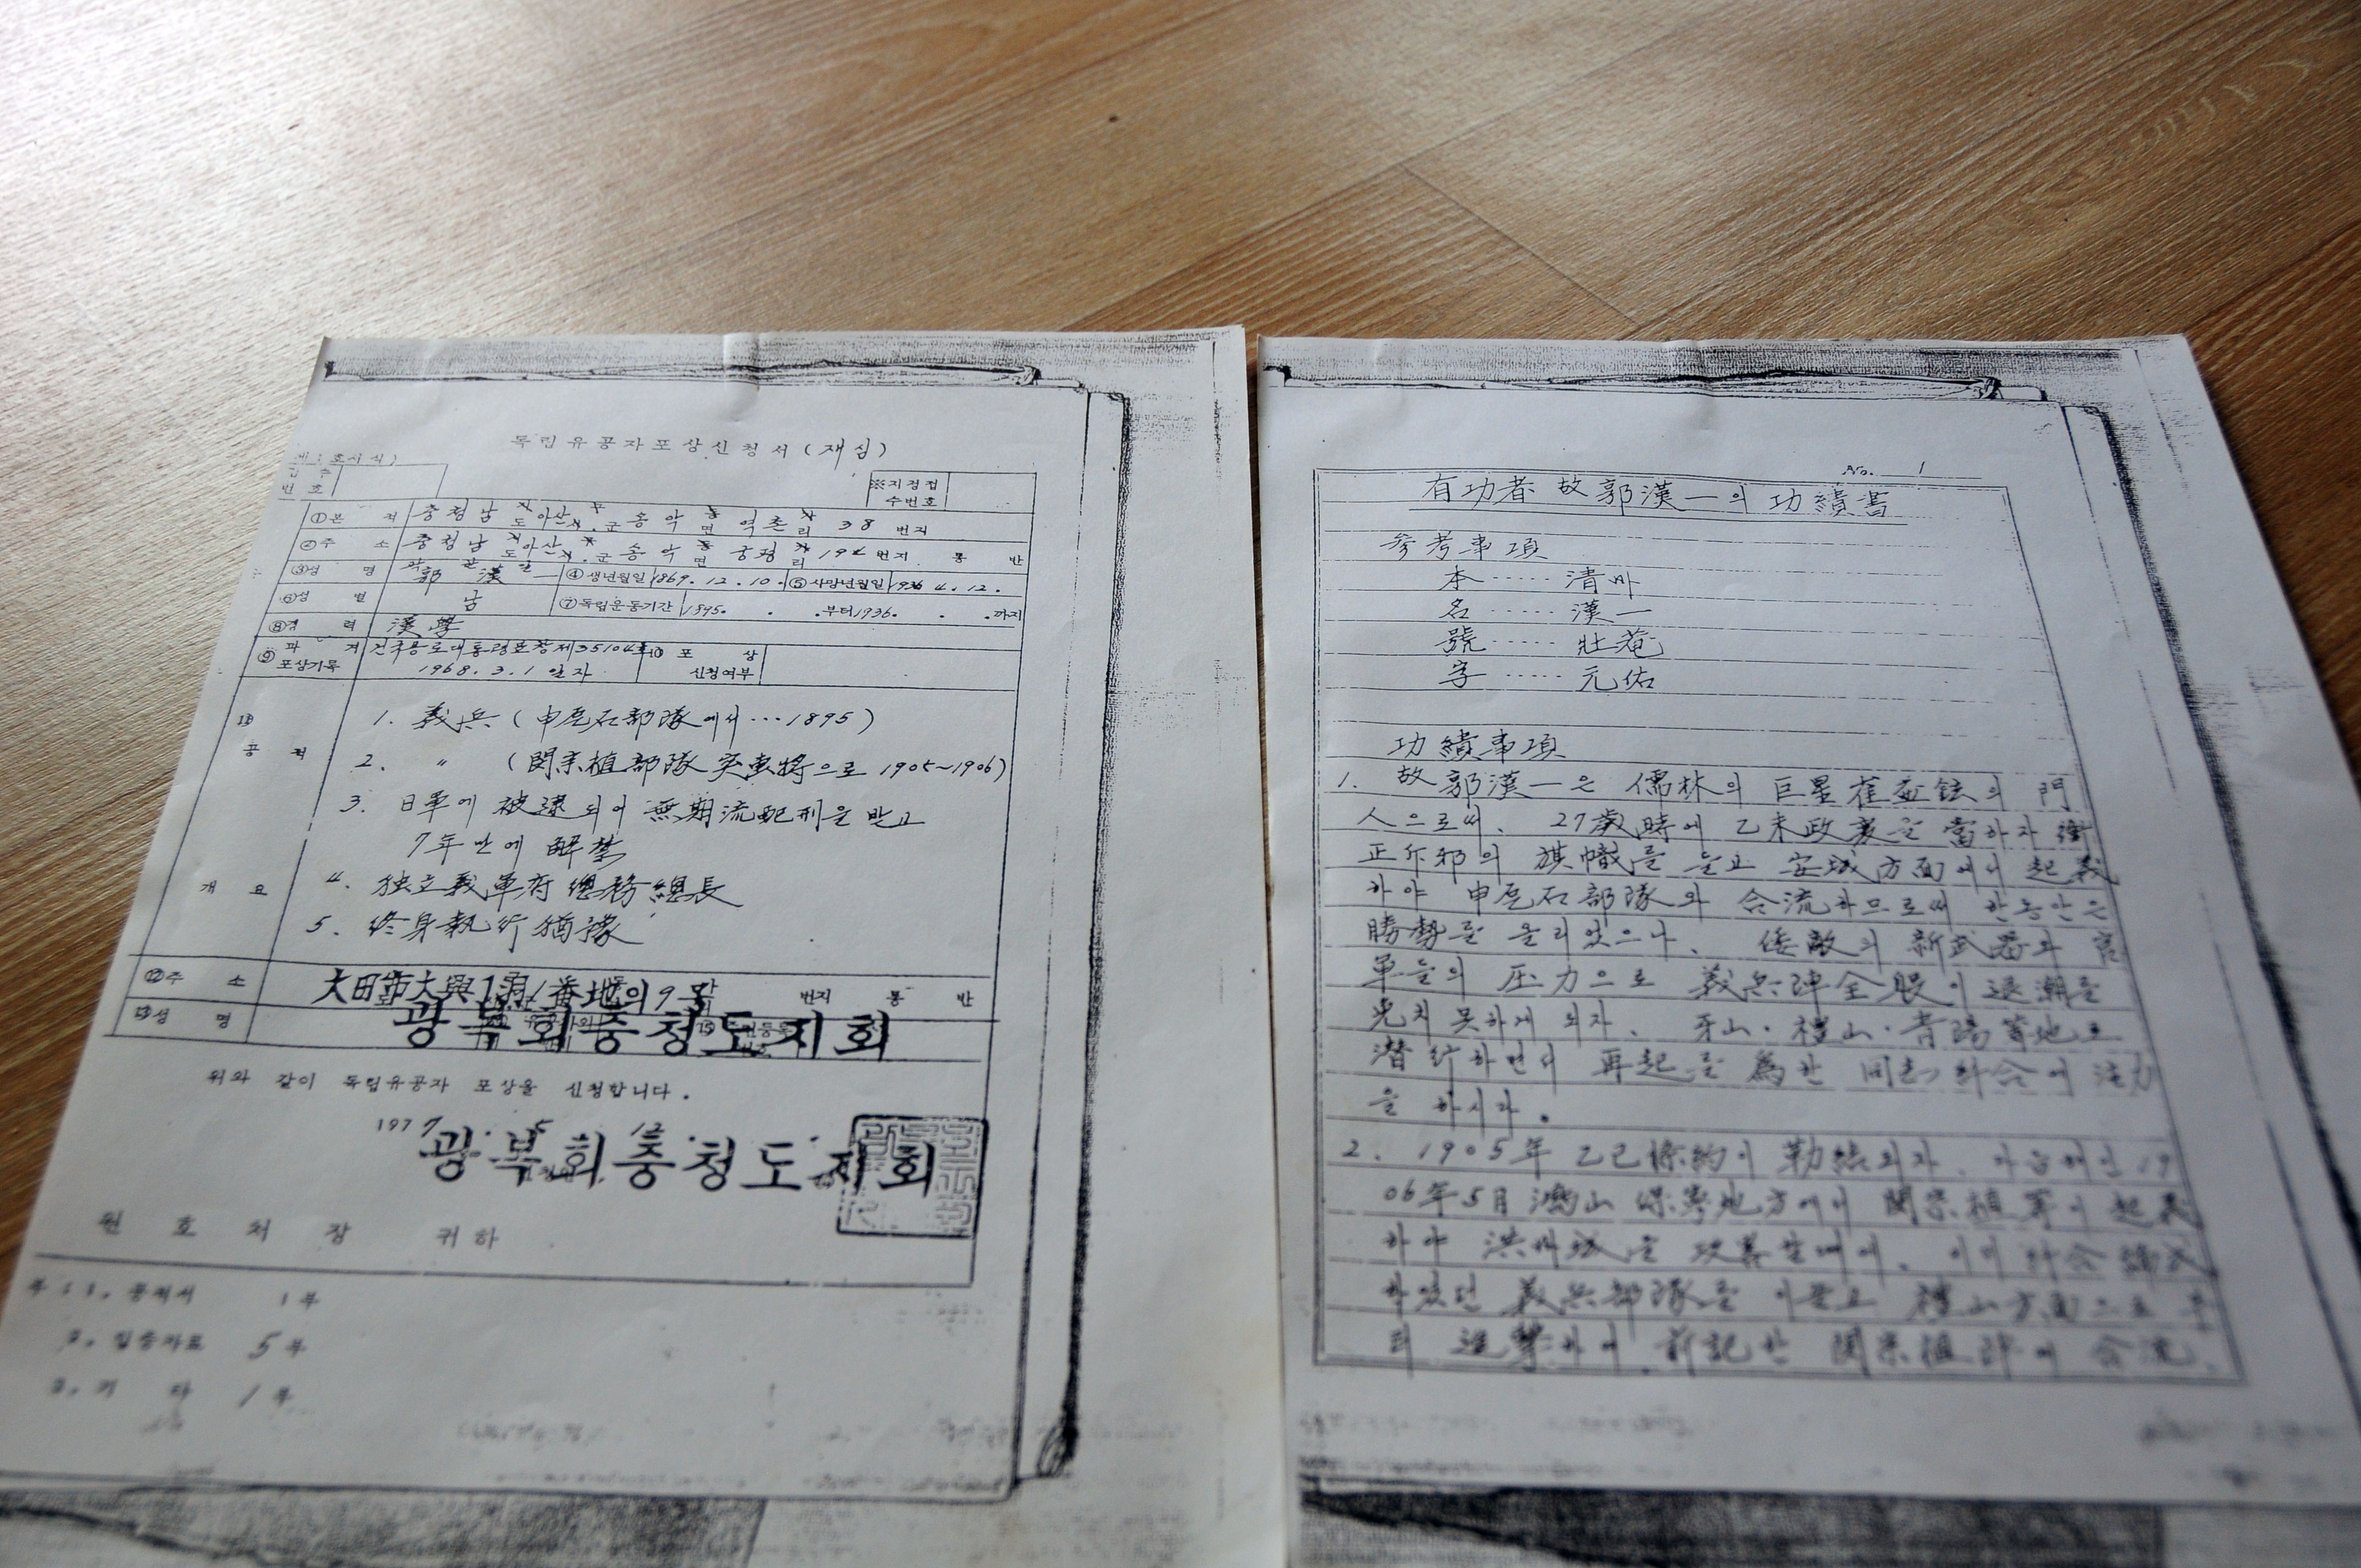 독립유공자포상신청서 (재심)
번호
※지정접
수번호
①본 적 충청남도 아산군 송악면 역촌리 38 번지
②주 소 충청남도 아산군 송악면 궁평리 192 번지 통 반
③성 명 곽한일 郭漢一 ④생년월일 1869.12.10. ⑤사망년월일 1936 4.12.
⑥성 별 남 ⑦독립운동기간 1895. . .부터 1936. . .까지
⑧경 력 漢學
⑨과 거 포상기록 건국공로대통령표창제35104호 1968.3.1 일자 ⑩포 상 신청여부
⑪
공 적
개 요
1. 義兵 (申
石部隊에서…1895)
2. 〃 (閔宗植部隊 突
將으로 1905~1906)
3. 日軍에 被逮되어 無期流配刑을 받고
7年만에 解禁
4. 独立義軍府 總務總長
5. 終身執行猶豫
⑫주 소 大田市大興1洞1番地의9号 번지 통 반
⑬성 명 광복회충청도지회
위와 같이 독립유공자 포상을 신청합니다.
1977. 5. 12.
광복회충청도지회
원 호 처 장 귀하
부:1. 공적서 1부
2. 입증자료 5부
3. 기 타 1부
No. 1
有功者 故郭漢一의 功績書
参考事項
本 ····· 清州
名 ····· 漢一
號 ····· 壯菴
字 ····· 元佑
功績事項
1. 故郭漢一은 儒林의 巨星崔益鉉의 門
人으로써, 27歲時에 乙未政變을 當하자 衛
正斥邪의 旗幟를 들고 安城方面에서 起義
하야 申
石部隊와 合流하므로써 한동안은
勝勢를 올리었으나, 倭敵의 新武器와 官
軍들의 压力으로 義兵陣全般이 退潮를
免치 못하게 되자, 牙山·禮山·青陽等地로
潜行하면서 再起를 為한 同志糾合에 注力
을 하시다.
2. 1905年 乙巳條約이 勒結되자, 다음해인 19
06年5月 鴻山
地方에서 閔宗植等이 起義
하야 洪州城을 攻

義兵部隊를 이끌고 禮山方面으로 부
터 進擊하여 前記한 閔宗植陣에 合流,